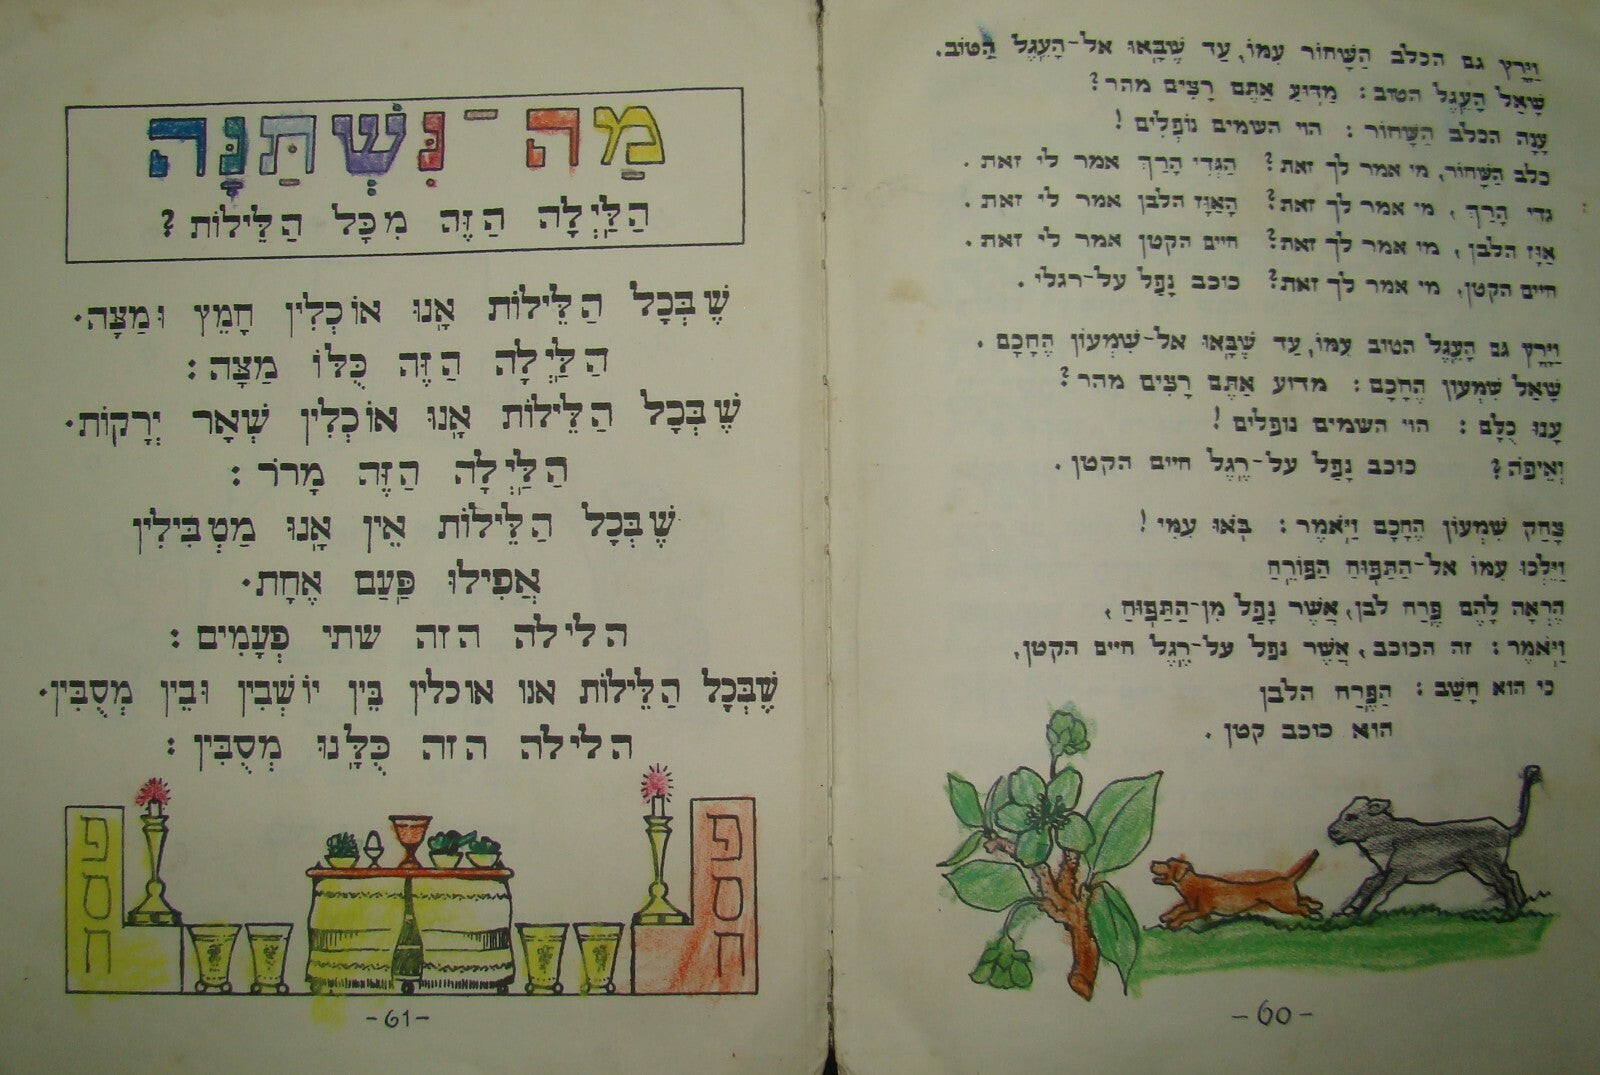 וַיָּרָץ גם הכלב הַשָּׁחוֹר עִמּוֹ, עַד שֶׁבָּאוּ אל-הָעֵגֶל הַטּוֹב.
שָׁאַל הָעֵגֶל הטוב: מַדּוּעַ אַתֶּם רָצִים מהר?
עָנָה הכלב הַשָּׁחוֹר: הוי השמים נוֹפְלִים!
כלב הַשָּׁחוֹר, מי אמר לך זאת? הַגְּדִי הָרַךְ אמר לי זאת.
גדי הָרַךְ, מי אמר לך זאת? הָאַוָּז הלבן אמר לי זאת.
אַוָּז הלבן, מי אמר לך זאת? חיים הקטן אמר לי זאת.
חיים הקטן, מי אמר לך זאת? כוכב נָפַל על-רגלי.
וַיָּרָץ גם הָעֵגֶל הטוב עִמּוֹ, עַד שֶׁבָּאוּ אל-שִׁמְעוֹן הֶחָכָם.
שָׁאַל שִׁמְעוֹן הֶחָכָם: מדוע אַתֶּם רָצִים מהר?
עָנוּ כֻלָּם: הוי השמים נופלים!
וְאֵיפֹה? כוכב נָפַל על-רֶגֶל חיים הקטן.
צָחַק שִׁמְעוֹן הֶחָכָם וַיֹּאמֶר: בֹּאוּ עִמִּי!
וַיֵּלְכוּ עִמּוֹ אל-הַתַּפּוּחַ הַפּוֹרֵחַ
הֶרְאָה לָהֶם פֶּרַח לבן, אֲשֶׁר נָפַל מִן-הַתַּפּוּחַ,
וַיֹּאמֶר: זה הכוכב, אֲשֶׁר נפל על-רֶגֶל חיים הקטן,
כי הוא חָשַׁב: הַפֶּרַח הלבן
הוא כוכב קטן.
-60-
מַה-נִּשְׁתַּנָּה
הַלַּיְלָה הַזֶּה מִכָּל הַלֵּילוֹת?
שֶׁבְּכָל הַלֵּילוֹת אָנוּ אוֹכְלִין חָמֵץ וּמַצָּה.
הַלַּיְלָה הַזֶּה כֻּלּוֹ מַצָּה:
שֶׁבְּכָל הַלֵּילוֹת אָנוּ אוֹכְלִין שְׁאָר יְרָקוֹת.
הַלַּיְלָה הַזֶּה מָרוֹר:
שֶׁבְּכָל הַלֵּילוֹת אֵין אָנוּ מַטְבִּילִין
אֲפִילוּ פַּעַם אֶחָת.
הלילה הזה שתי פְעָמִים:
שֶׁבְּכָל הַלֵּילוֹת אנו אוכלין בֵּין יוֹשְׁבִין וּבֵין מְסֻבִּין.
הלילה הזה כֻּלָּנוּ מְסֻבִּין:
פסח
פסח
-61-